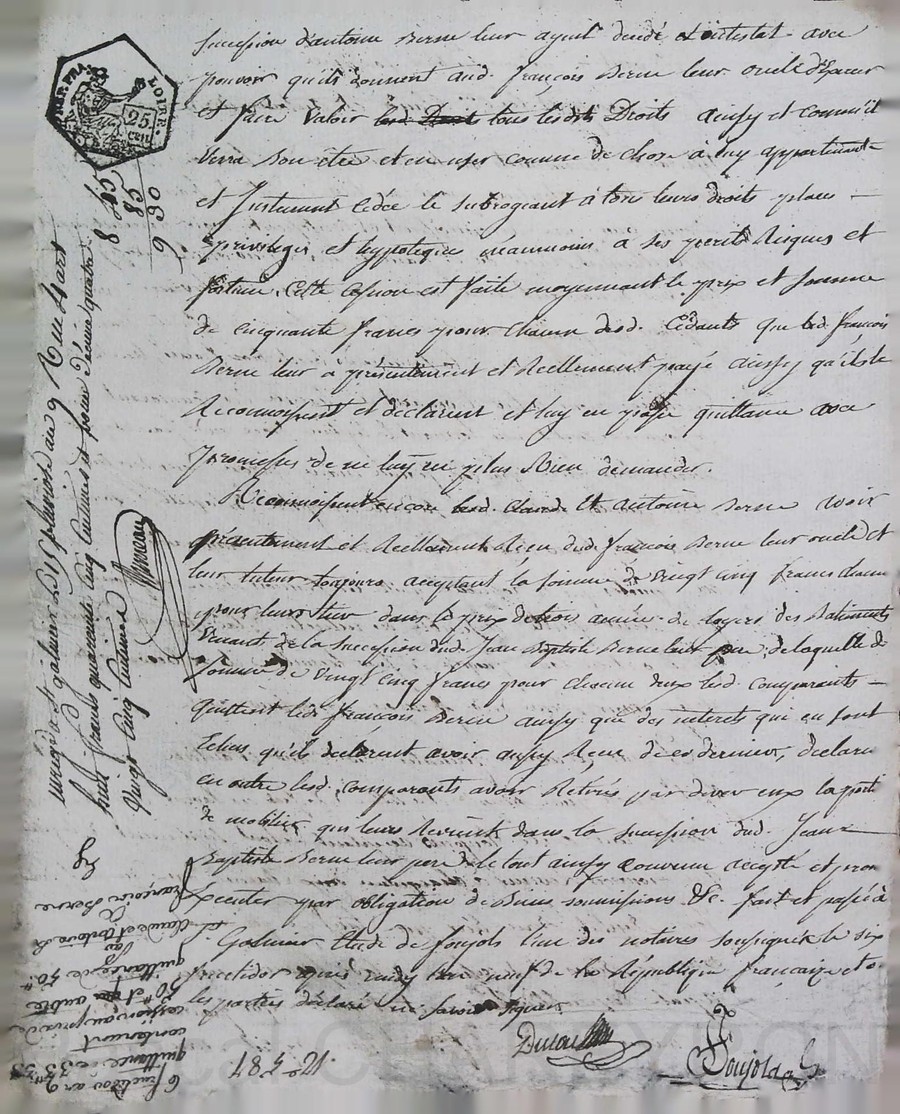 succession d'antoine Berne leur ayeul decédé ab intestat avec
pouvoir qu'ils donnent aud. françois Berne leur oncle d'Exercer
et faire valoir tous lesdits Droits ainsy et comm'il
verra bon etre et en user comme de chose à luy appartenante
et Justement cédée le subrogeant à tous leurs droits places
privileges et hypoteques néanmoins à ses perils Risques et
fortune, Cette Cession est faite moyennant le prix et somme
de cinquante francs pour chacun desd. Cédants que led. françois
Berne leur à présentement et Réellement payé ainsy qu'ils le
Reconnoissent et déclarent et luy en passe quittance avec
promesse de ne luy en plus Rien demander.
Reconnoissent encore lesd. Claude Et antoine Berne avoir
présentement et Réellement Reçu dud. françois Berne leur oncle et
leur tuteur toujours acceptant la somme de vingt cinq francs chacun
pour leur dans le prix de trois année de loyers des Batiments
venant de la succession dud. Jean Baptiste Berne leur pere, de laquelle
somme de vingt cinq francs pour chacun deux lesd. comparants
quittent led. françois Berne ainsy que des interets qui en sont
Echus, qu'ils declarent avoir aussy Reçu de ce dernier, declarent
en outre lesd. comparants avoir Retirés par devers eux la portion
de mobilier qui leurs Revient dans la succession dud. Jean
Baptiste Berne leur pere le tout ainsy convenu accepté et promis
Executer par obligation de Biens soumissions &c. fait et passé à
St Galmier Etude de Soujols l'un des notaires soussignés le six
fructidor après midy l'an neuf de la République française et
les parties declaré ne savoir signer
Soujols
REP. FRA.
LOIRE.
25
cen.
8 45
85
9 30
Enregistré à St galmier le 15 fructidor an 9 Reçu
huit francs quarante cinq centimes et pour décime quatre
Vingt Cinq Centimes
6 fructidor an 9
quittance
contenant
cession au prix de
50 et autre
quittance de 50
par
Claude et Antoine
françois Berne